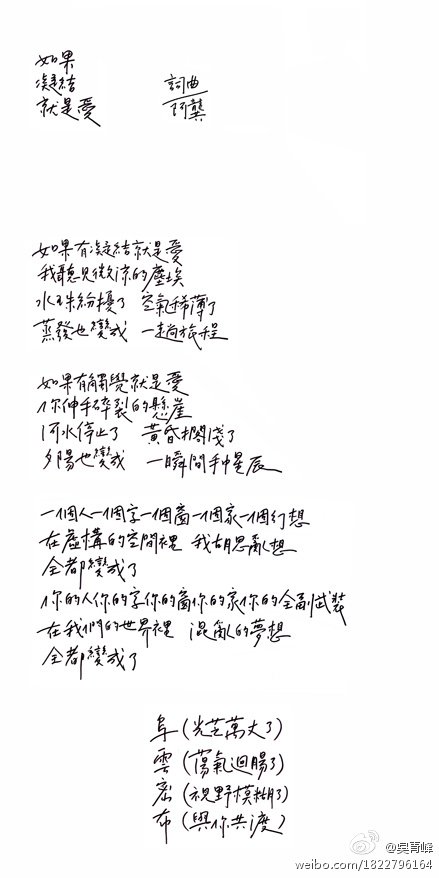 如果
凝結
就是愛
詞曲
阿龔
如果有凝結就是愛
我聽見微涼的塵埃
水珠紛擾了 空氣稀薄了
蒸發也變成 一趟旅程
如果有觸覺就是愛
你伸手碎裂的懸崖
河水停止了 黃昏擱淺了
夕陽也變成 一瞬間手中星辰
一個人一個字一個窗一個家一個幻想
在虛構的空間裡 我胡思亂想
全都變成了
你的人你的字你的窗你的家你的全副武裝
在我們的世界裡 混亂的夢想
全都變成了
阜(光芒萬丈了)
雲(蕩氣迴腸了)
密(視野模糊了)
布(與你共渡)
@吳青峰
weibo.com/1822796164